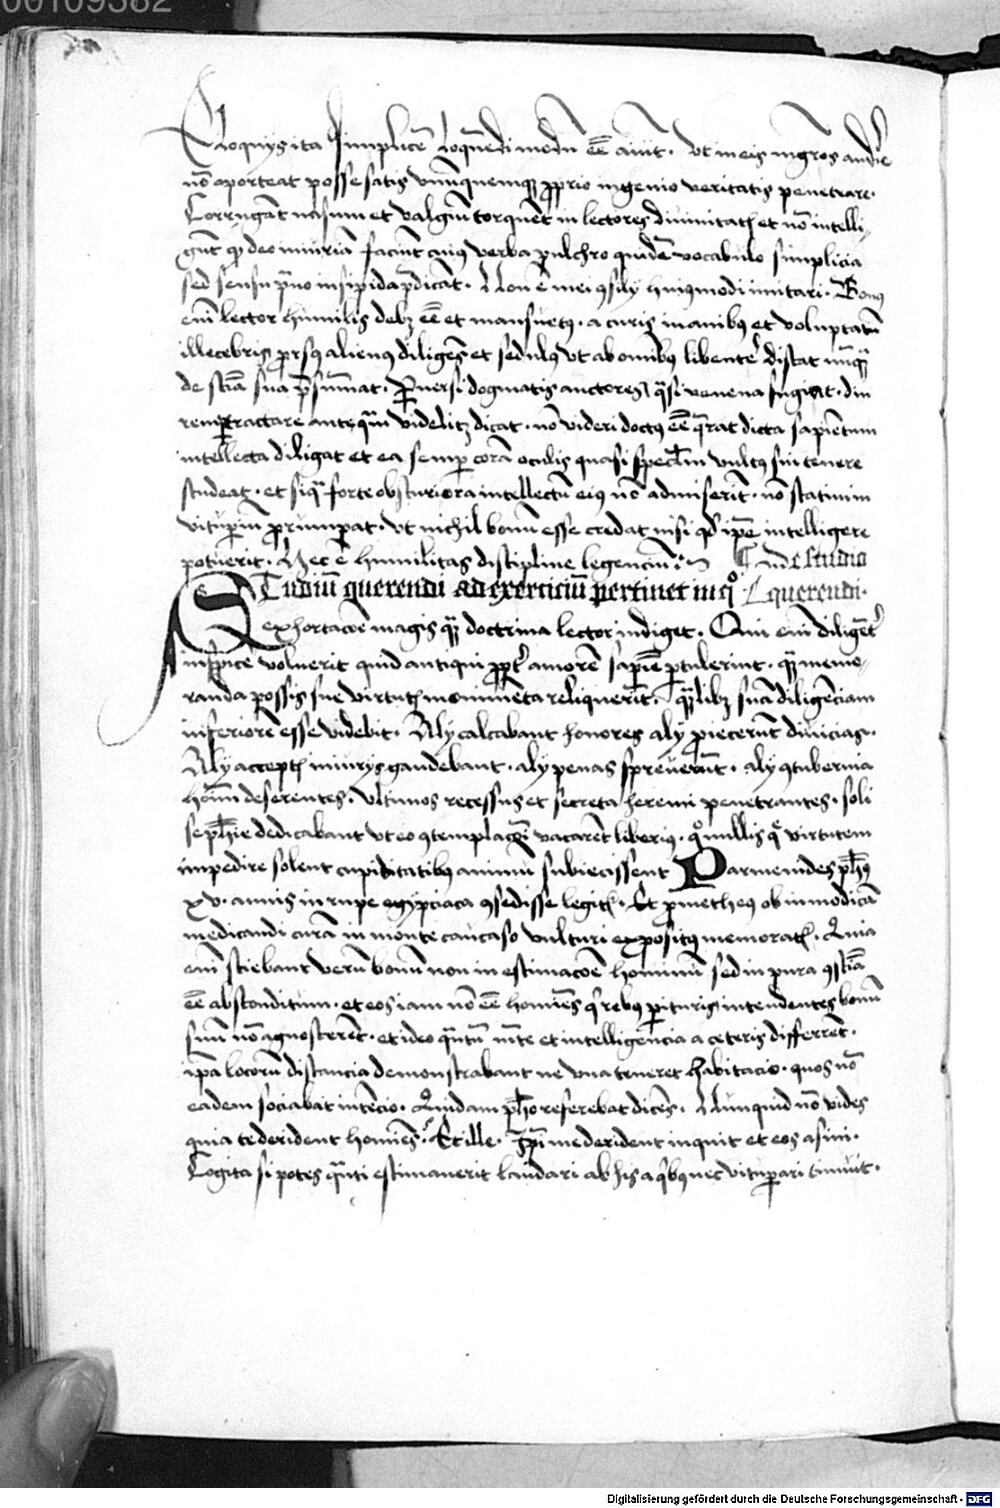 00109382
Eloquijs ita simplicē loquēdi modū eē aiūt. Ut in eis mgr̄os audire
nō oporteat posse satis unūquemq3 p̄prio ingenio veritatis penetrare.
Corrugāt nasum et valgiū torquēt in lectores diuinitatꝭ et nō intelli-
gūt qꝫ deo iniuriā faciūt cuiꝰ verba pulchro quidē vocabulo simplicia
sed sensu prauo insipida p̄dicāt. Non ē mei ꝯsilij huiꝰmodi imitari. Bonꝰ
eni lector humilis debꝫ eē et mansuetꝰ. a curis inanibꝰ et voluptatū
illecebris prorsꝰ alienꝰ diligēs et sedulꝰ ut ab omibꝰ libenter discat nūqꝫ
de sciā sua p̄sumat. Peruersi dogmatis auctores q̄si venena fugiat. diu
rem pertractare anteq̄m videlitꝫ dicat. nō videri doctꝰ eē q̄rat dicta sapiētum
intellecta diligat et ea semper corā oculis quasi speculum vultꝰ sui tenere
studeat. et si q̄ forte obscuriora intellectū eiꝰ nō admiserīt. nō statim in
vituperiū prorumpat. ut nichil bonū esse credat nisi qd̄ ip̄e intelligere
potuerit. Hec ē humilitas discipline legenciū. De studio
STudiū querendi ad exerciciū pertinet in quo querendi.
exhortacōe magis qꝫ doctrina lector indiget. Qui eni diligēter
inspicere voluerit quid antiqui propter amorē sapiē pertulerint. qꝫ memo-
randa posteris sue virtutꝭ monimēta reliquerīt. qꝫlibꝫ suā diligēciam
inferiorē esse videbit. Alij calcabant honores alij proiecerūt diuicias.
Alij acceptꝭ iniurijs gaudebant. alij penas spreuerūt. alij ꝯtubernia
hoīm deserentes. ultimos recessus et secreta heremi penetrantes. soli
se phīe dedicabant ut eo ꝯtemplacōi vacarēt liberiꝰ. qo nullis q̄ virtutem
impedire solent cupiditatibꝰ animū subiecissent Parmenides phūs
xv. annis in rupe egypciaca ꝯsedisse legitꝰ. Et prometheꝰ ob inmodicā
medicandi curā in monte caucaso vulturi expositꝰ memoratꝰ. Quia
eni sciebant verū bonū non in estimacōe hominū sed in pura ꝯsciā
eē absconditum. et eos iam nō eē homīes q̄ rebꝰ perituris intendentes bonū
suū nō agnoscerēt. et ideo q̄ntū mēte et intelligencia a ceteris differrēt.
ip̄a locorū distancia demonstrabant ne una teneret habitacio. quos nō
eadem sociabat intēcio. Quidam phō referebat dicēs. Nunquid nō vides
quia te derident homīes. Et ille. Ip̄i me derident inquit et eos asini.
Cogita si potes q̄nti estimauerit laudari ab his a qbꝰ nec vituperari timuit.
Digitalisierung gefördert durch die Deutsche Forschungsgemeinschaft - DFG